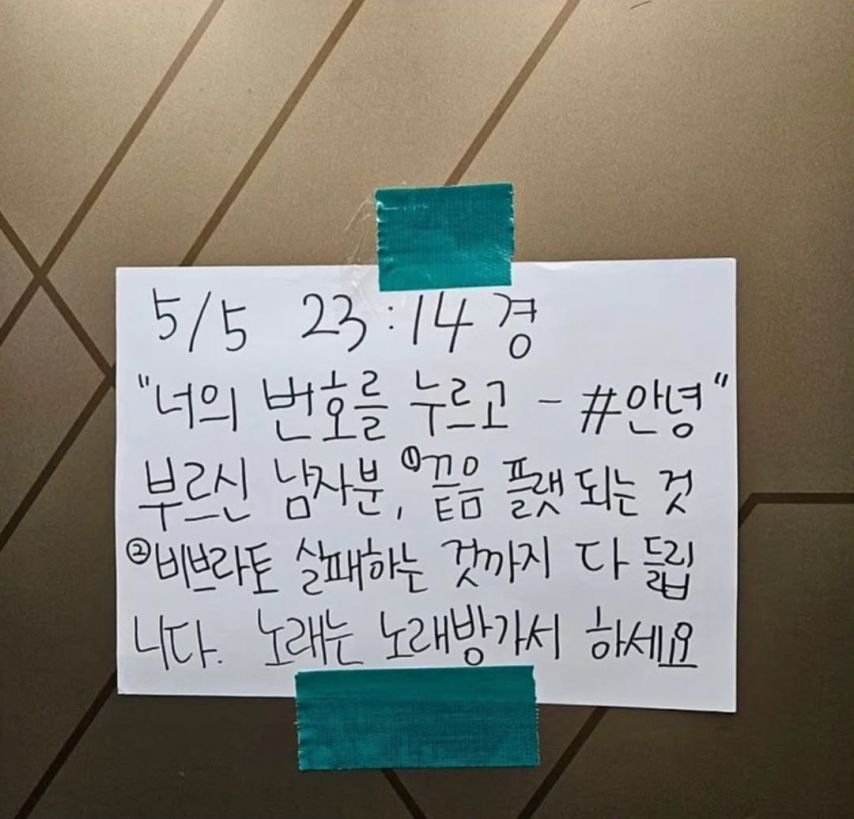 5/5 23:14경
"너의 번호를 누르고 - #안녕"
부르신 남자분, ①끝음 플랫 되는 것
②비브라토 실패하는 것까지 다 들립
니다. 노래는 노래방가서 하세요